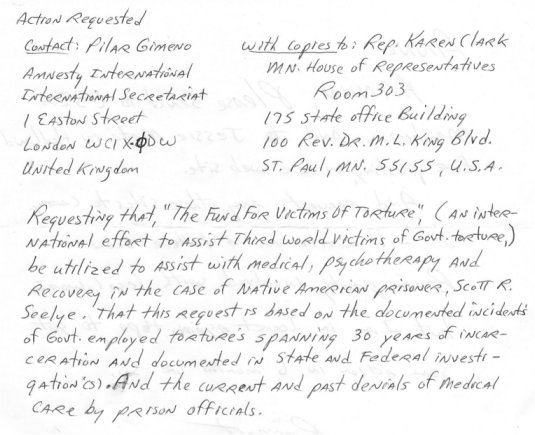 Action Requested
Contact: Pilar Gimeno
Amnesty International
International Secretariat
1 Easton Street
London WC1X-0DW
United Kingdom
with copies to: Rep. Karen Clark
MN. House of Representatives
Room 303
175 State office Building
100 Rev. Dr. M.L. King Blvd.
St. Paul, MN. 55155, U.S.A.
Requesting that, "The Fund For Victims Of Torture", (an inter-
national effort to assist Third World Victims of Govt. torture,)
be utilized to assist with medical, psychotherapy and
Recovery in the case of Native American prisoner, Scott R.
Seelye. That this request is based on the documented incidents
of Govt. employed torture's spanning 30 years of incar-
ceration and documented in State and Federal investi-
gation(s). And the current and past denials of medical
care by prison officials.